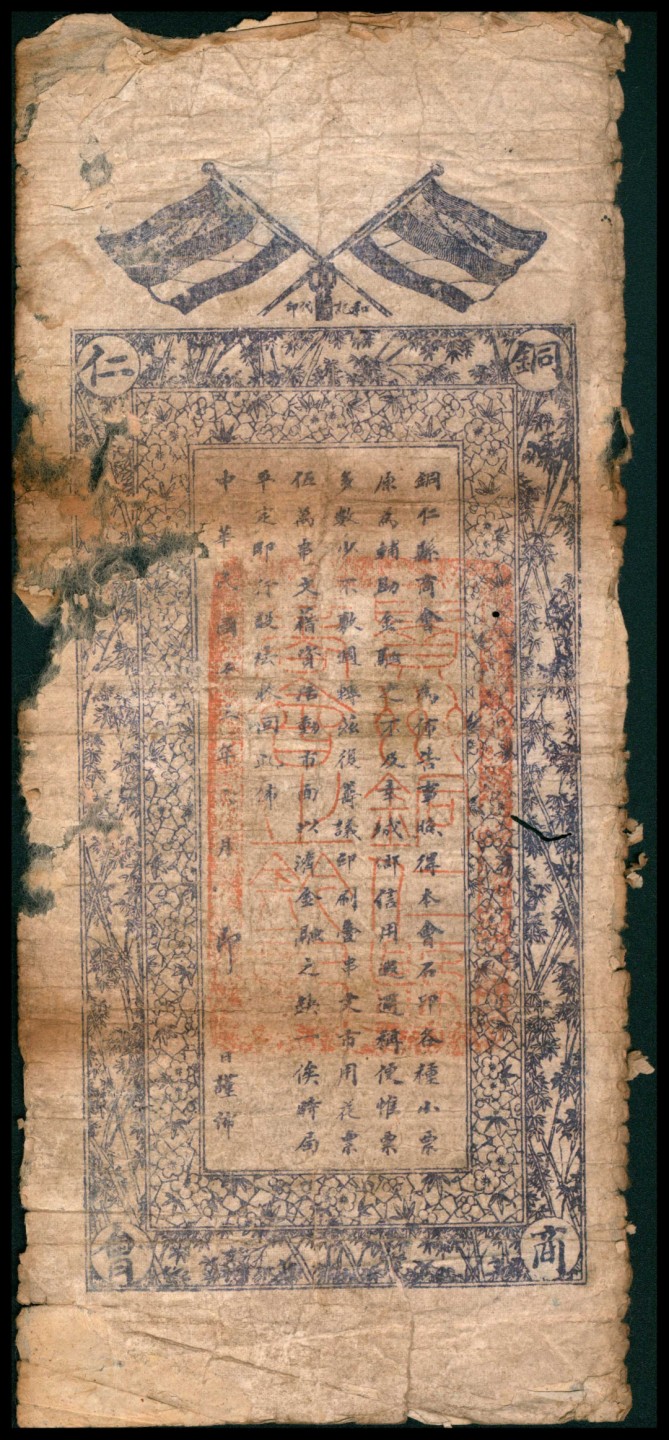 和記代印
銅仁
商會
銅仁縣商會 為佈告事照得本會石印各種小票
原為輔助金融之不及幸咸御信用週過稱便惟票
多數少不敷週轉茲復籌議印刷壹串文市用花票
伍萬串文藉資活動市面以濟金融之缺一俟時局
平定即行設法收回此佈
中華民國年月 即 日謹佈